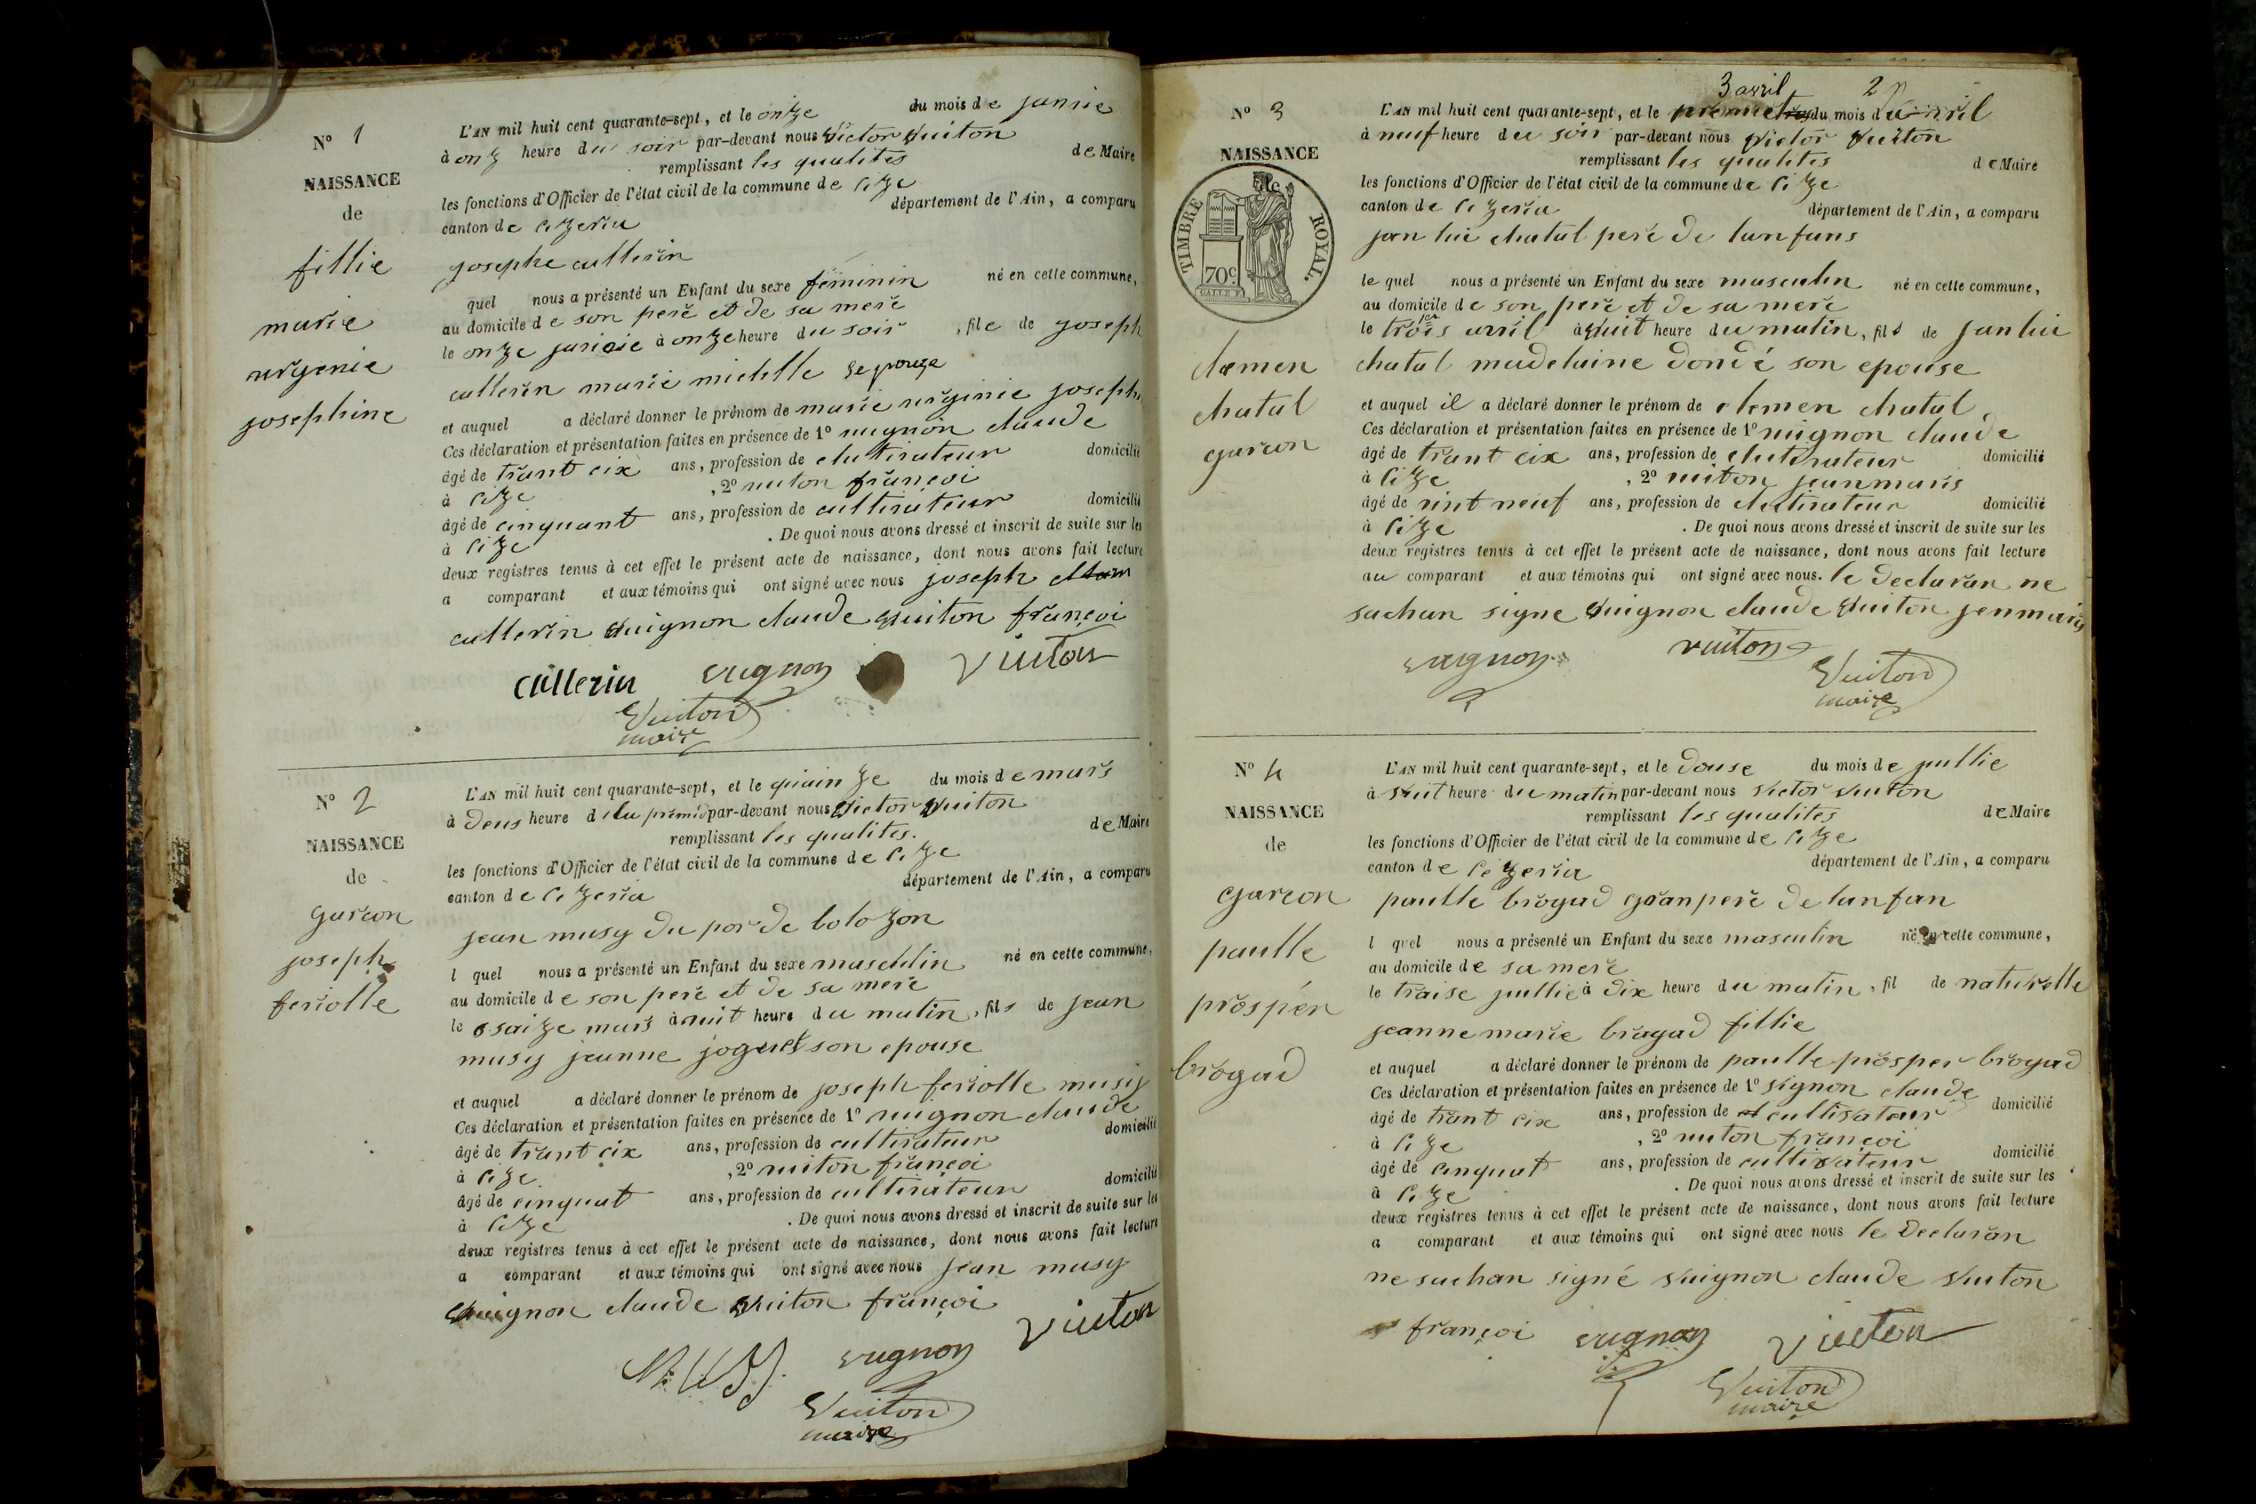 N° 1
NAISSANCE
de
fillie
marie
virgenie
josephine
L'AN mil huit cent quarante-sept, et le onze du mois de janvie
à onz heure du soir par-devant nous Victor Vuiton
remplissant les qualites de Maire
les fonctions d'Officier de l'état civil de la commune de Cize
canton de Cizeria département de l'Ain, a comparu
josephe cullerin
quel nous a présenté un Enfant du sexe féminin né en cette commune,
au domicile de son pere et de sa mere
le onze janvie à onze heure du soir, file de joseph
cullerin marie michelle
et auquel a déclaré donner le prénom de marie virginie joseph
Ces déclaration et présentation faites en présence de 1° vuignon claude
âgé de trant cix ans, profession de cultivateur domicilié
à Cize, 2° vuiton françoi
âgé de cinquant ans, profession de cultivateur domicilié
à Cize. De quoi nous avons dressé et inscrit de suite sur les
deux registres tenus à cet effet le présent acte de naissance, dont nous avons fait lecture
a comparant et aux témoins qui ont signé avec nous joseph
cullerin Vuignon claude Vuiton françoi
Cullerin vugnon Vuiton
Vuiton
maire
N° 2
NAISSANCE
de
garcon
joseph
feriolle
L'AN mil huit cent quarante-sept, et le quinze du mois de mars
à deus heure par-devant nous Victor Vuiton
remplissant les qualites. de Maire
les fonctions d'Officier de l'état civil de la commune de Cize
canton de Cizeria département de l'Ain, a comparu
jean musy du por de bolozon
l quel nous a présenté un Enfant du sexe masculin né en cette commune,
au domicile de son pere et de sa mere
le saize mars à nuit heure du matin, fils de jean
musy jeanne joguet son epouse
et auquel a déclaré donner le prénom de joseph feriolle musy
Ces déclaration et présentation faites en présence de 1° vuignon claude
âgé de trant cix ans, profession de cultivateur domicilié
à Cize, 2° vuiton françoi
âgé de cinquat ans, profession de cultivateur domicilié
à Cize. De quoi nous avons dressé et inscrit de suite sur les
deux registres tenus à cet effet le présent acte de naissance, dont nous avons fait lecture
a comparant et aux témoins qui ont signé avec nous jean musy
Vuignon claude Vuiton françoi
vugnon Vuiton
Vuiton
maire
3 avril 2
N° 3
NAISSANCE
de
TIMBRE ROYAL.
70c
clemen
chatal
garcon
L'AN mil huit cent quarante-sept, et le du mois d avril
à neuf heure du soir par-devant nous Victor Vuiton
remplissant les qualites de Maire
les fonctions d'Officier de l'état civil de la commune de Cize
canton de Cizeria département de l'Ain, a comparu
jan lui chatal pere de lanfans
le quel nous a présenté un Enfant du sexe masculin né en cette commune,
au domicile de son pere et de sa mere
le trois avril à huit heure du matin, fils de jan lui
chatal madelaine dondé son epouse
et auquel il a déclaré donner le prénom de clemen chatal,
Ces déclaration et présentation faites en présence de 1° vuignon claude
âgé de trant cix ans, profession de cultivateur domicilié
à Cize, 2° vuiton jeanmaris
âgé de vint neuf ans, profession de cultivateur domicilié
à Cize. De quoi nous avons dressé et inscrit de suite sur les
deux registres tenus à cet effet le présent acte de naissance, dont nous avons fait lecture
au comparant et aux témoins qui ont signé avec nous. le declaran ne
sachan signe Vuignon claude Vuiton jenmaris
vugnon vuiton
Vuiton
maire
N° 4
NAISSANCE
de
garcon
paulle
prospér
brogad
L'AN mil huit cent quarante-sept, et le douse du mois de jullie
à vuit heure du matin par-devant nous Victor Vuiton
remplissant les qualites de Maire
les fonctions d'Officier de l'état civil de la commune de Cize
canton de Cezeria département de l'Ain, a comparu
paulle brogad granpere de lanfan
l quel nous a présenté un Enfant du sexe masculin né en cette commune,
au domicile de sa mere
le traise jullie à dix heure du matin, fil de naturelle
jeanne marie brogad fillie
et auquel a déclaré donner le prénom de paulle prosper brogad
Ces déclaration et présentation faites en présence de 1° vignon claude
âgé de trant cix ans, profession de cultivateur domicilié
à Cize, 2° vuiton françoi
âgé de cinquat ans, profession de cultivateur domicilié
à Cize. De quoi nous avons dressé et inscrit de suite sur les
deux registres tenus à cet effet le présent acte de naissance, dont nous avons fait lecture
a comparant et aux témoins qui ont signé avec nous le declaran
ne sachan signé Vuignon claude Vuiton
françoi vugnon Vuiton
Vuiton
maire